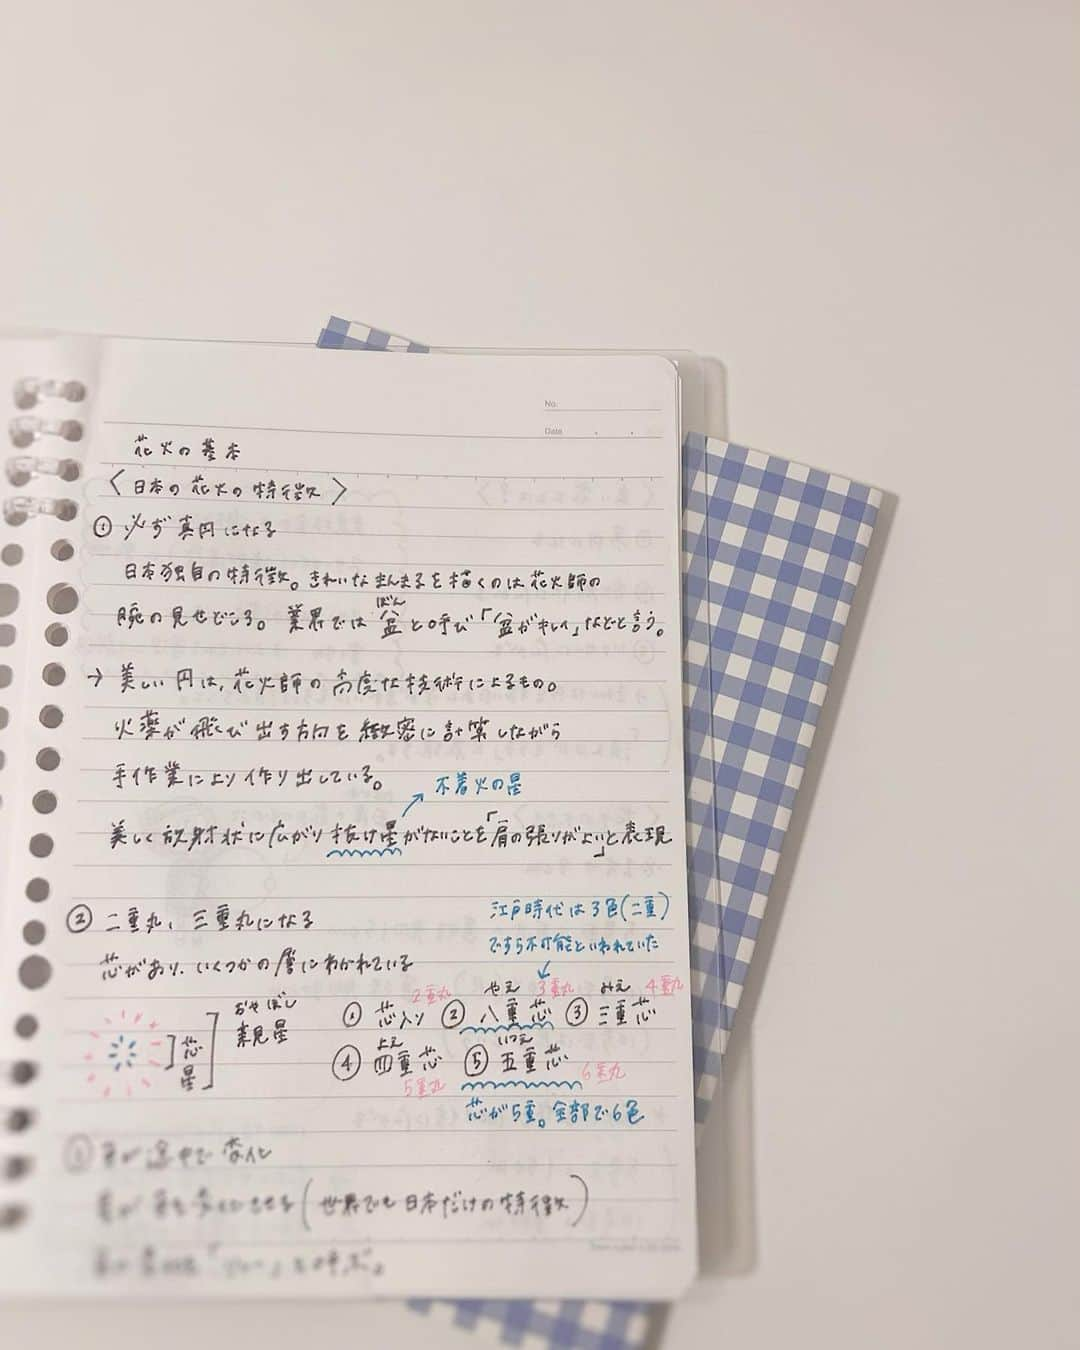 No.
Date
花火の基本
〈日本の花火の特徴〉
① 必ず真円になる
日本独自の特徴。きれいなまんまるを描くのは花火師の
腕の見せどころ。業界では盆と呼び「盆がキレイ」などと言う。
ぼん
→ 美しい円は、花火師の高度な技術によるもの。
火薬が飛び出す方向を緻密に計算しながら
手作業により作り出している。
不着火の星
美しく放射状に広がり抜け星がないことを「肩の張りがよい」と表現
② 二重丸、三重丸になる
江戸時代は3色(二重)
ですら不可能といわれていた
芯があり、いくつかの層にわかれている
芯
星
おやぼし
親星
① 芯入り 2重丸 ② 八重芯 やえ 3重丸 ③ 三重芯 みえ 4重丸
④ 四重芯 よえ 5重丸 ⑤ 五重芯 いつえ 6重丸
芯が5重。全部で6色
途中で変化
(世界でも日本だけの特徴)